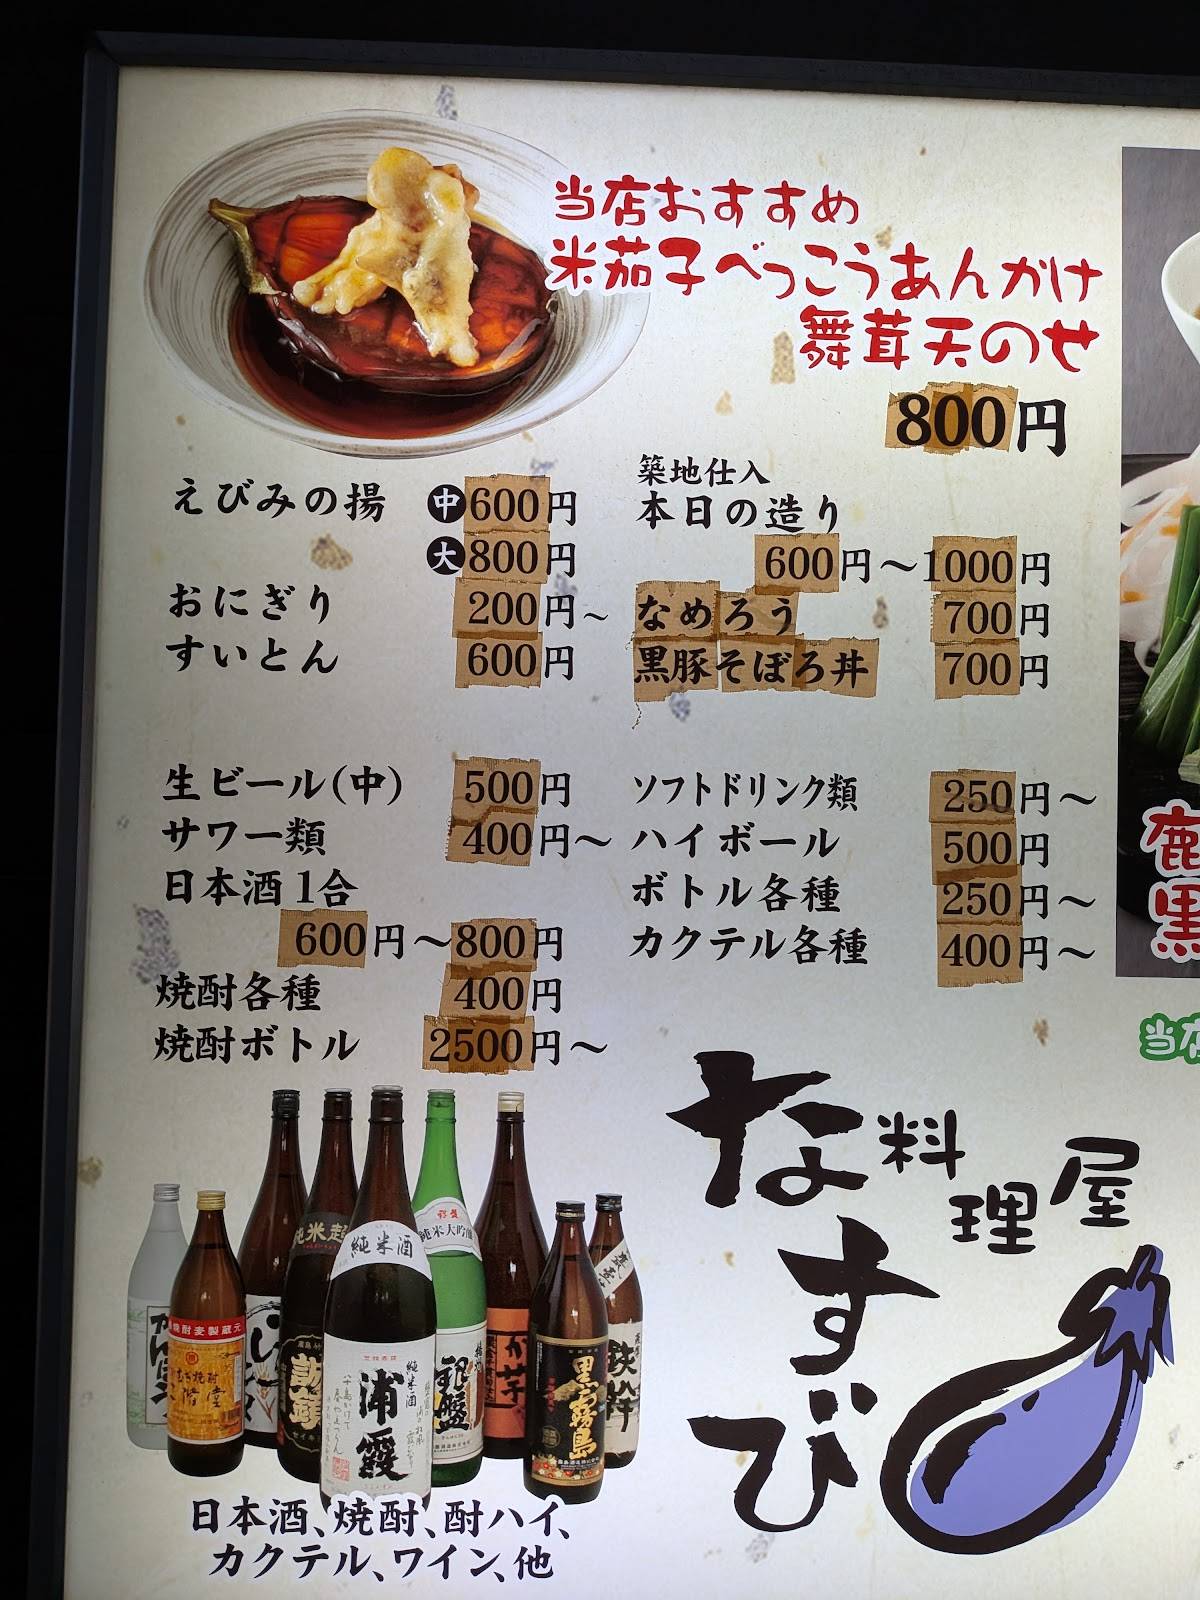 当店おすすめ
米茄子べっこうあんかけ
舞茸天のせ
800円
えびみの揚 中600円
大800円
おにぎり 200円~
すいとん 600円
築地仕入
本日の造り
600円～1000円
なめろう 700円
黒豚そぼろ丼 700円
生ビール(中) 500円
サワー類 400円～
日本酒1合
600円～800円
焼酎各種 400円
焼酎ボトル 2500円～
ソフトドリンク類 250円～
ハイボール 500円
ボトル各種 250円～
カクテル各種 400円～
鹿
黒
当店
料理屋
なすび
純米酒
純米大吟醸
浦霞
銀盤
黒霧島
か芋
鉄幹
日本酒、焼酎、酎ハイ、
カクテル、ワイン、他